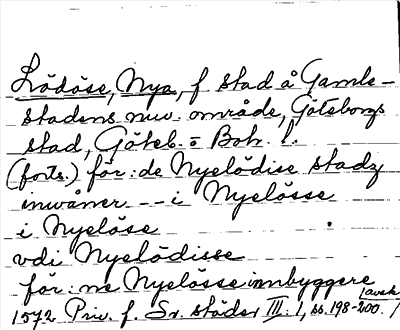 Lödöse, Nya, f. stad å Gamle-
stadens nuv. område, Göteborgs
stad, Göteb. o Boh. l.
(forts.) för: de Nyelödise stadz
inwåner -- i Nyelösse
i Nyelöse
vdi Nyelödisse
för: ne Nyelösse innbyggere
1572 Priv. f. Sv. städer III: 1, ss. 198-200. /avskr